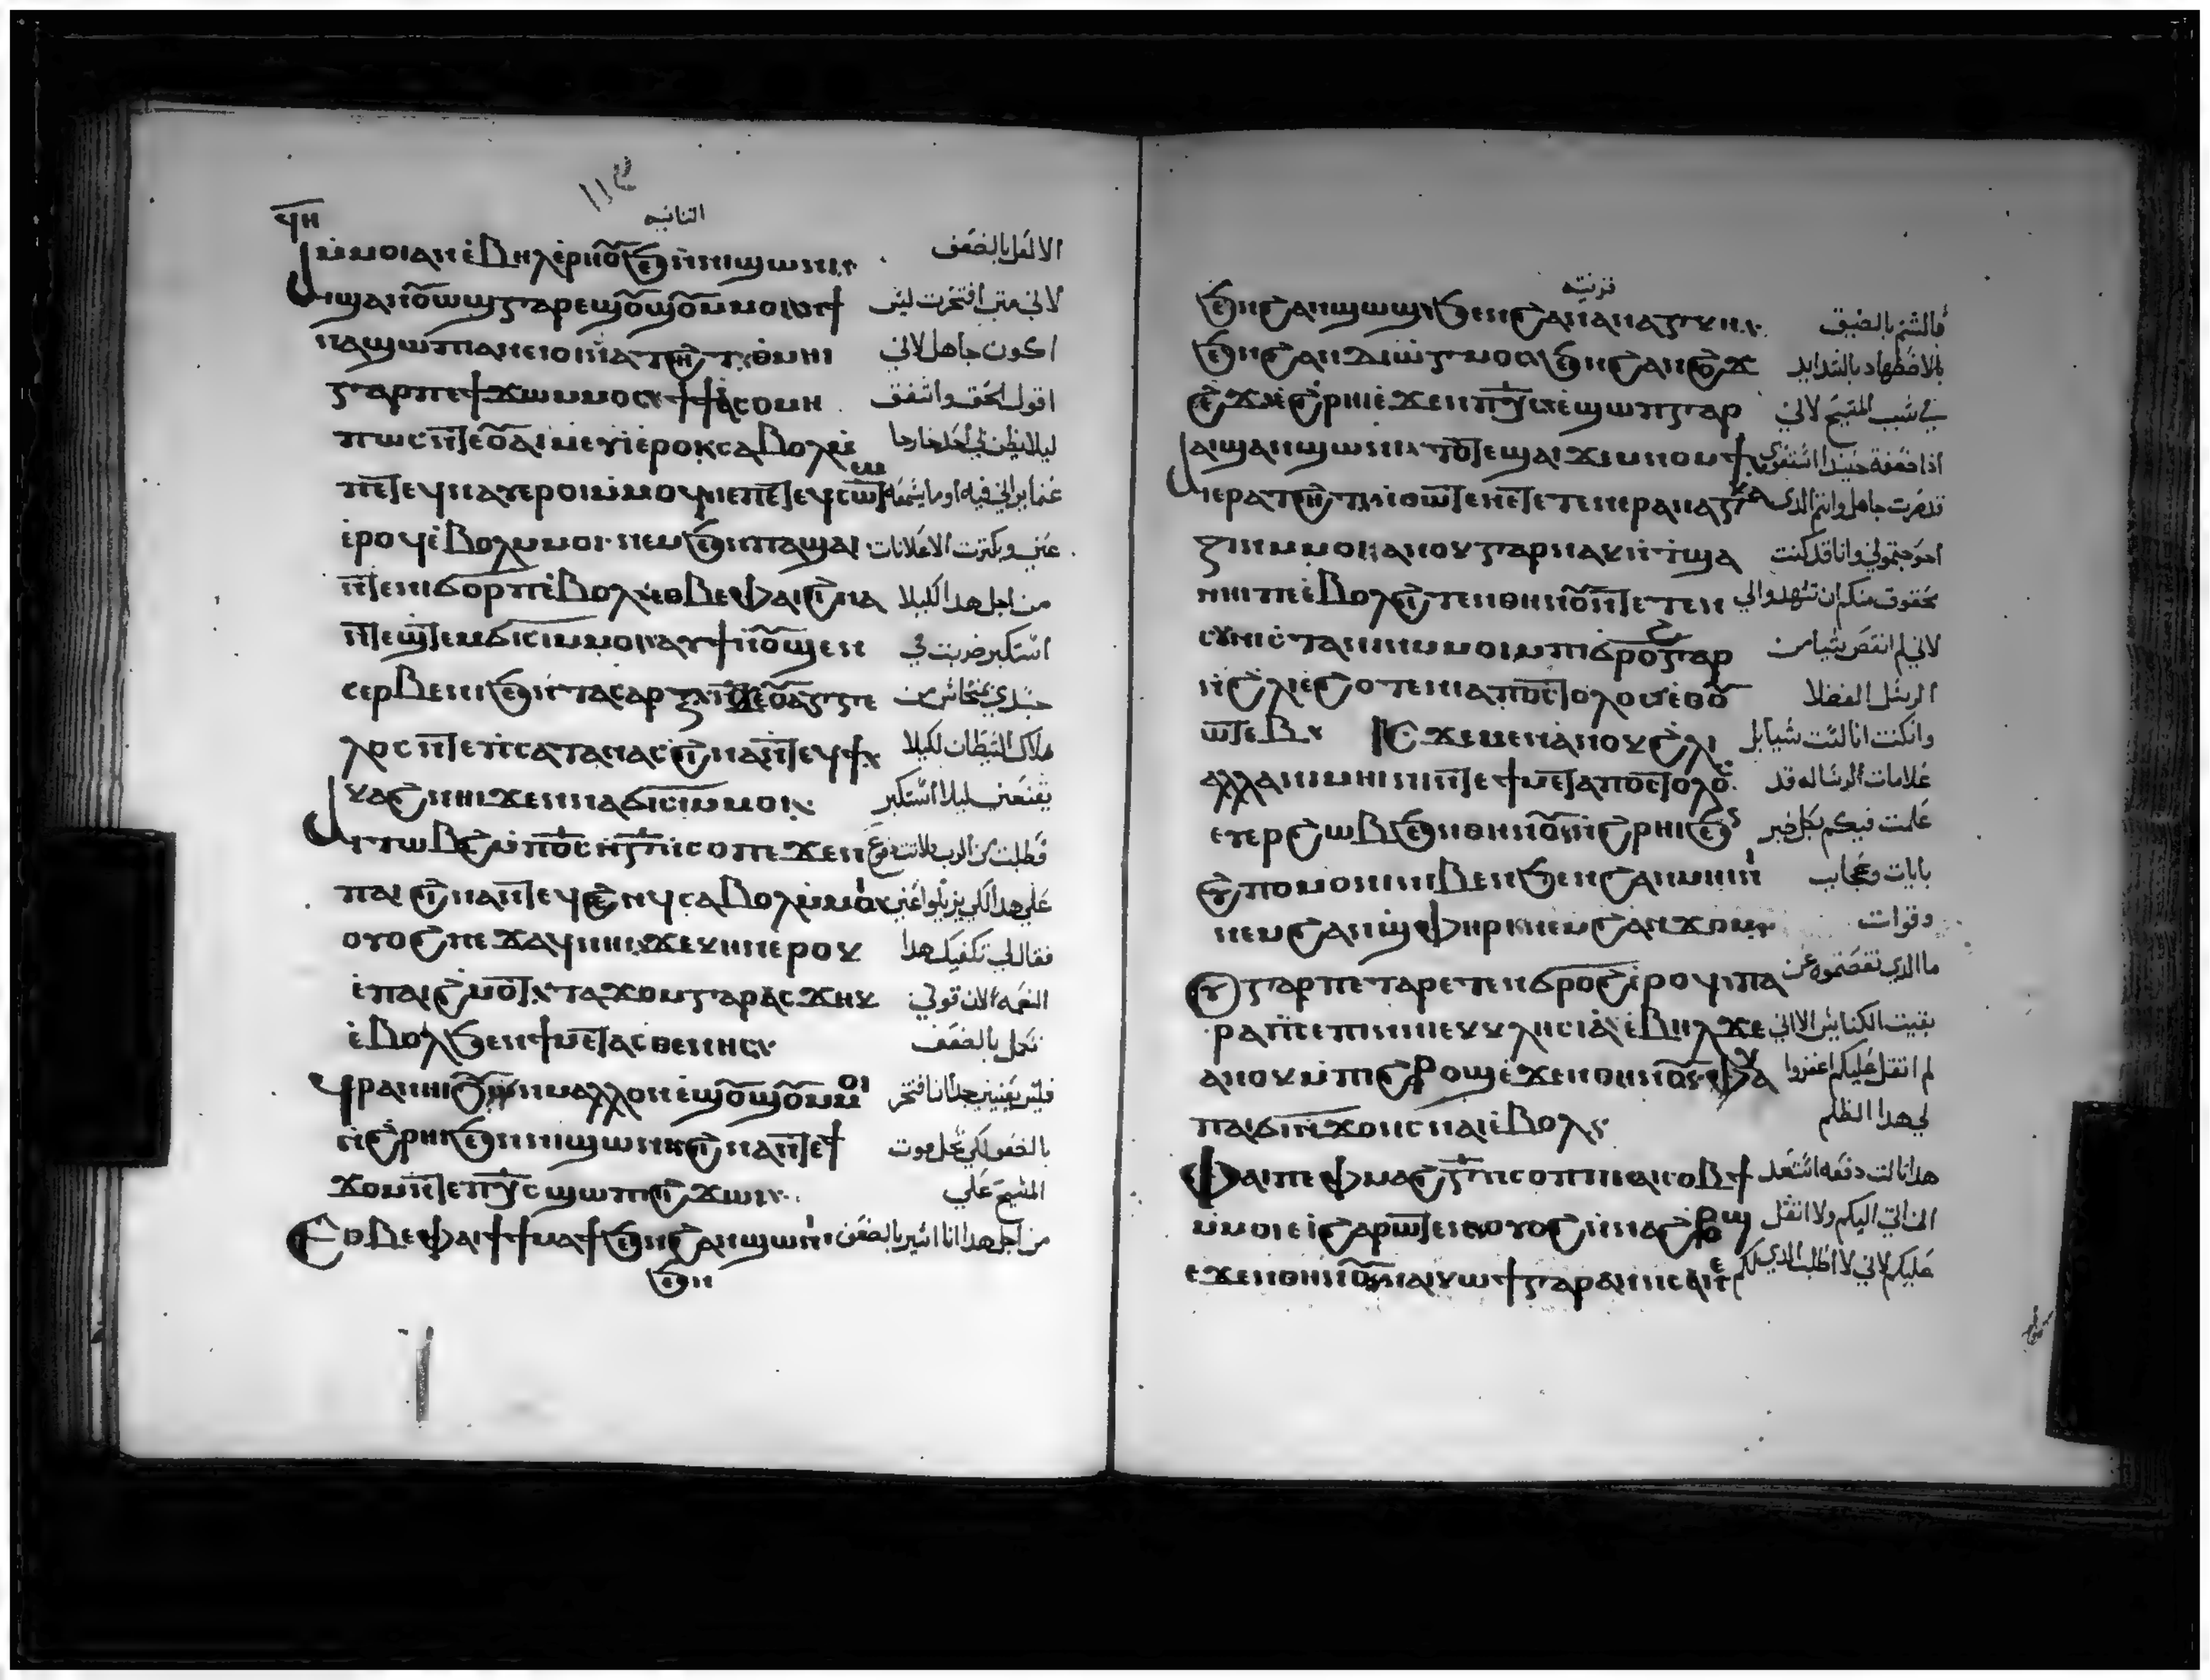 ϥⲏ
الثانيه
ⲙ̀ⲙⲟⲓ ⲁⲛ ⲉ̀ⲃⲏⲗ ⲉ̀ⲣⲏⲟⲩ ϧⲉⲛ ⲛⲓϣⲱⲛⲓ الا لعل بالضعف
ⲁⲓϣⲁⲛⲟⲩⲱϣ ⲅⲁⲣ ⲉϣⲟⲩϣⲟⲩ ⲙⲙⲟⲓ ⲛϯ لاني متى افتخرت ليس
ⲛⲁϣⲱⲡⲓ ⲁⲛ ⲉⲓⲟⲓ ⲛⲁⲧϩⲏⲧ ⲑⲙⲏⲓ اكون جاهل لاني
ⲅⲁⲣ ⲡⲉϯϫⲱ ⲙⲙⲟⲥ ϯϯⲁⲥⲟ ⲙⲏ اقول الحق واشفق
ⲡⲱⲥ ⲛⲧⲉⲟⲩⲁⲓ ⲙⲉⲩⲓ ⲉⲣⲟⲓ ⲥⲁⲃⲟⲗ ⲙ̀ ليلا يظن في احد خارجا
ⲡⲉⲧⲉϥⲛⲁⲩ ⲉⲣⲟⲓ ⲙ̀ⲙⲟϥ ⲓⲉ ⲡⲉⲧⲉϥⲥⲱⲧⲉⲙ عما يراني فيه او ما يسمعه
ⲉ̀ⲣⲟϥ ⲉ̀ⲃⲟⲗ ⲙⲙⲟⲓ ⲛⲉⲙ ϧⲉⲛ ⲡⲁϣⲁⲓ عني وبكثرت الاعلانات
ⲛⲧⲉ ⲛⲓϭⲟⲣⲡ ⲉ̀ⲃⲟⲗ ⲉⲑⲃⲉ ⲫⲁⲓ ϩⲓⲛⲁ من اجل هدا لكيلا
ⲛⲧⲉϣⲧⲉⲙϭⲓⲥⲓ ⲙⲙⲟⲓ ⲁⲩϯ ⲛⲟⲩϣⲉⲛ استكبر ضربت في
ⲥⲉⲣⲃⲉⲛⲓ ϧⲉⲛ ⲧⲁⲥⲁⲣⲝ ⲟⲩⲁⲅⲅⲉ جسدي بمنخاس من
ⲗⲟⲥ ⲛⲧⲉ ⲡⲥⲁⲧⲁⲛⲁⲥ ϩⲓⲛⲁ ⲛⲧⲉϥϯ ملاك الشيطان لكيلا
ⲕⲁϩ ⲛⲏⲓ ϫⲉ ⲛⲛⲁϭⲓⲥⲓ ⲙⲙⲟⲓ يقنعني ليلا استكبر
ⲁⲓⲧⲱⲃϩ ⲙ̀ⲡⲟⲥ ⲛⲅ ⲛⲥⲟⲡ ϫⲉⲛ فطلبت من الرب ثلاثت دفوع
ⲡⲁⲓ ϩⲓⲛⲁ ⲛⲧⲉϥϩⲉⲛϥ ⲥⲁⲃⲟⲗ ⲙ̀ⲙⲟⲓ علي هدا لكي يزيلوا عني
ⲟⲩⲟϩ ⲡⲉϫⲁϥ ⲛⲏⲓ ϫⲉ ⲕⲏⲛ ⲉⲣⲟⲕ فقال لي تكفيك هدا
ⲉ̀ⲡⲁⲓϩⲙⲟⲧ ⲧⲁϫⲟⲙ ⲅⲁⲣ ⲁⲥϫⲏⲕ النعمه لان قوتي
ⲉ̀ⲃⲟⲗ ϧⲉⲛ ϯⲙⲉⲧⲁⲥⲑⲉⲛⲏⲥ تكمل بالضعف
ϥⲣⲁⲛⲏⲓ ⲟⲩⲛ ⲙⲁⲗⲗⲟⲛ ⲉ̀ϣⲟⲩϣⲟⲩ ⲙⲙⲟⲓ فليس يعينني جدا انا افتخر
ⲛ̀ϩⲣⲏⲓ ϧⲉⲛ ⲛⲓϣⲱⲛⲓ ϩⲓⲛⲁ ⲛⲧⲉϯ بالضعف لكي تحل قوت
ϫⲟⲙ ⲛⲧⲉ ⲡⲭⲥ ϣⲱⲡⲓ ϩⲓϫⲱⲓ المسيح علي
ⲉⲑⲃⲉ ⲫⲁⲓ ϯϯⲙⲁϯ ϧⲉⲛ ϩⲁⲛϣⲱⲛⲓ من اجل هدا انا اسر بالضعف
ϧⲉⲛ
قرنتيه
ϧⲉⲛ ϩⲁⲛϣⲱϣ ϧⲉⲛ ϩⲁⲛⲁⲛⲁⲅⲕⲏ فالشتم بالضيق
ϧⲉⲛ ϩⲁⲛⲇⲓⲱⲅⲙⲟⲥ ϧⲉⲛ ϩⲁⲛϩⲟϫ بالاضطهاد بالشدايد
ϩⲉϫ ⲉ̀ϩⲣⲏⲓ ⲉ̀ϫⲉⲛ ⲡⲭⲥ ⲉϣⲱⲡ ⲅⲁⲣ في سبب المسيح لاني
ⲁⲓϣⲁⲛϣⲱⲛⲓ ⲧⲟⲧⲉ ϣⲁⲓϫⲉⲙⲛⲟⲙϯ اذا ضعفت حينيدا استقوي
ⲁⲓⲉⲣⲁⲧϩⲏⲧ ⲛⲑⲱⲧⲉⲛ ⲉⲧⲉⲧⲉⲛⲉⲣⲁⲛⲁⲅⲕⲁ قد صرت جاهل وانتم الدي
ⲍⲓⲛ ⲙⲙⲟⲓ ⲁⲛⲟⲕ ⲅⲁⲣ ⲛⲁⲕⲏ ⲛ̀ⲧϣⲁ احوجتموني وانا قد كنت
ⲛⲏⲓ ⲡⲉ ⲉ̀ⲃⲟⲗ ϩⲓⲧⲉⲛ ⲑⲏⲛⲟⲩ ⲛⲧⲉⲧⲉⲛ بحقوق منكم ان تشهدوا لي
ⲥⲩⲛⲓⲥⲧⲁⲛⲓⲛ ⲙⲙⲟⲓ ⲙⲡⲓϭⲣⲟϩ ⲅⲁⲣ لاني لم انقص شيا من
ⲛ̀ϩⲗⲓ ⲉϩⲟⲧⲉ ⲛⲓⲁⲡⲟⲥⲧⲟⲗⲟⲥ ⲉⲑⲟⲩ الرسل الفضلا
ⲱⲧⲉⲃ ⲓⲥϫⲉ ⲙⲉⲛ ⲁⲛⲟⲕ ϩⲗⲓ وان كنت انا لست شيا بل
ⲁⲗⲗⲁ ⲛⲓⲙⲏⲓⲛⲓ ⲛⲧⲉ ϯⲙⲉⲧⲁⲡⲟⲥⲧⲟⲗⲟⲥ علامات الرساله قد
ⲉⲩⲉⲣϩⲱⲃ ϧⲉⲛ ⲑⲏⲛⲟⲩ ⲛ̀ϩⲣⲏⲓ ϧⲉⲛ عملت فيكم بكل صبر
ϩⲩⲡⲟⲙⲟⲛⲏ ⲛⲓⲃⲉⲛ ϧⲉⲛ ϩⲁⲛⲙⲏⲓⲛⲓ بايات وعجايب
ⲛⲉⲙ ϩⲁⲛϣⲫⲏⲣⲓ ⲛⲉⲙ ϩⲁⲛϫⲟⲙ وقوات
ⲟⲩ ⲅⲁⲣ ⲡⲉⲧⲁⲣⲉⲧⲉⲛϭⲣⲟϩ ⲉ̀ⲣⲟϥ ⲡⲁ ما الدي نقصتموه عن
ⲣⲁ ⲡⲥⲉⲡⲓ ⲛⲛⲓⲉⲕⲕⲗⲏⲥⲓⲁ ⲉ̀ⲃⲏⲗ ϫⲉ بقيت الكنايس الا اني
ⲁⲛⲟⲕ ⲙ̀ⲡⲓϩⲣⲟϣ ⲉ̀ϫⲉⲛ ⲑⲏⲛⲟⲩ ⲭⲁ لم اثقل عليكم اغفروا
ⲡⲁⲓϭⲓⲛϫⲟⲛⲥ ⲛⲏⲓ ⲉ̀ⲃⲟⲗ لي هدا الظلم
ⲫⲁⲓ ⲡⲉ ⲫⲙⲁϩⲅ ⲛⲥⲟⲡ ϯⲥⲟⲃϯ هدا ثالت دفعه استعد
ⲙ̀ⲙⲟⲓ ⲉ̀ⲓ ϩⲁⲣⲱⲧⲉⲛ ⲟⲩⲟϩ ⲛⲛⲁϩⲣⲟϣ ان اتي اليكم ولا اثقل
ⲉϫⲉⲛ ⲑⲏⲛⲟⲩ ⲛⲁⲓⲕⲱϯ ⲅⲁⲣ ⲁⲛ ⲛⲥⲁ عليكم لاني لا اطلب الدي لكم